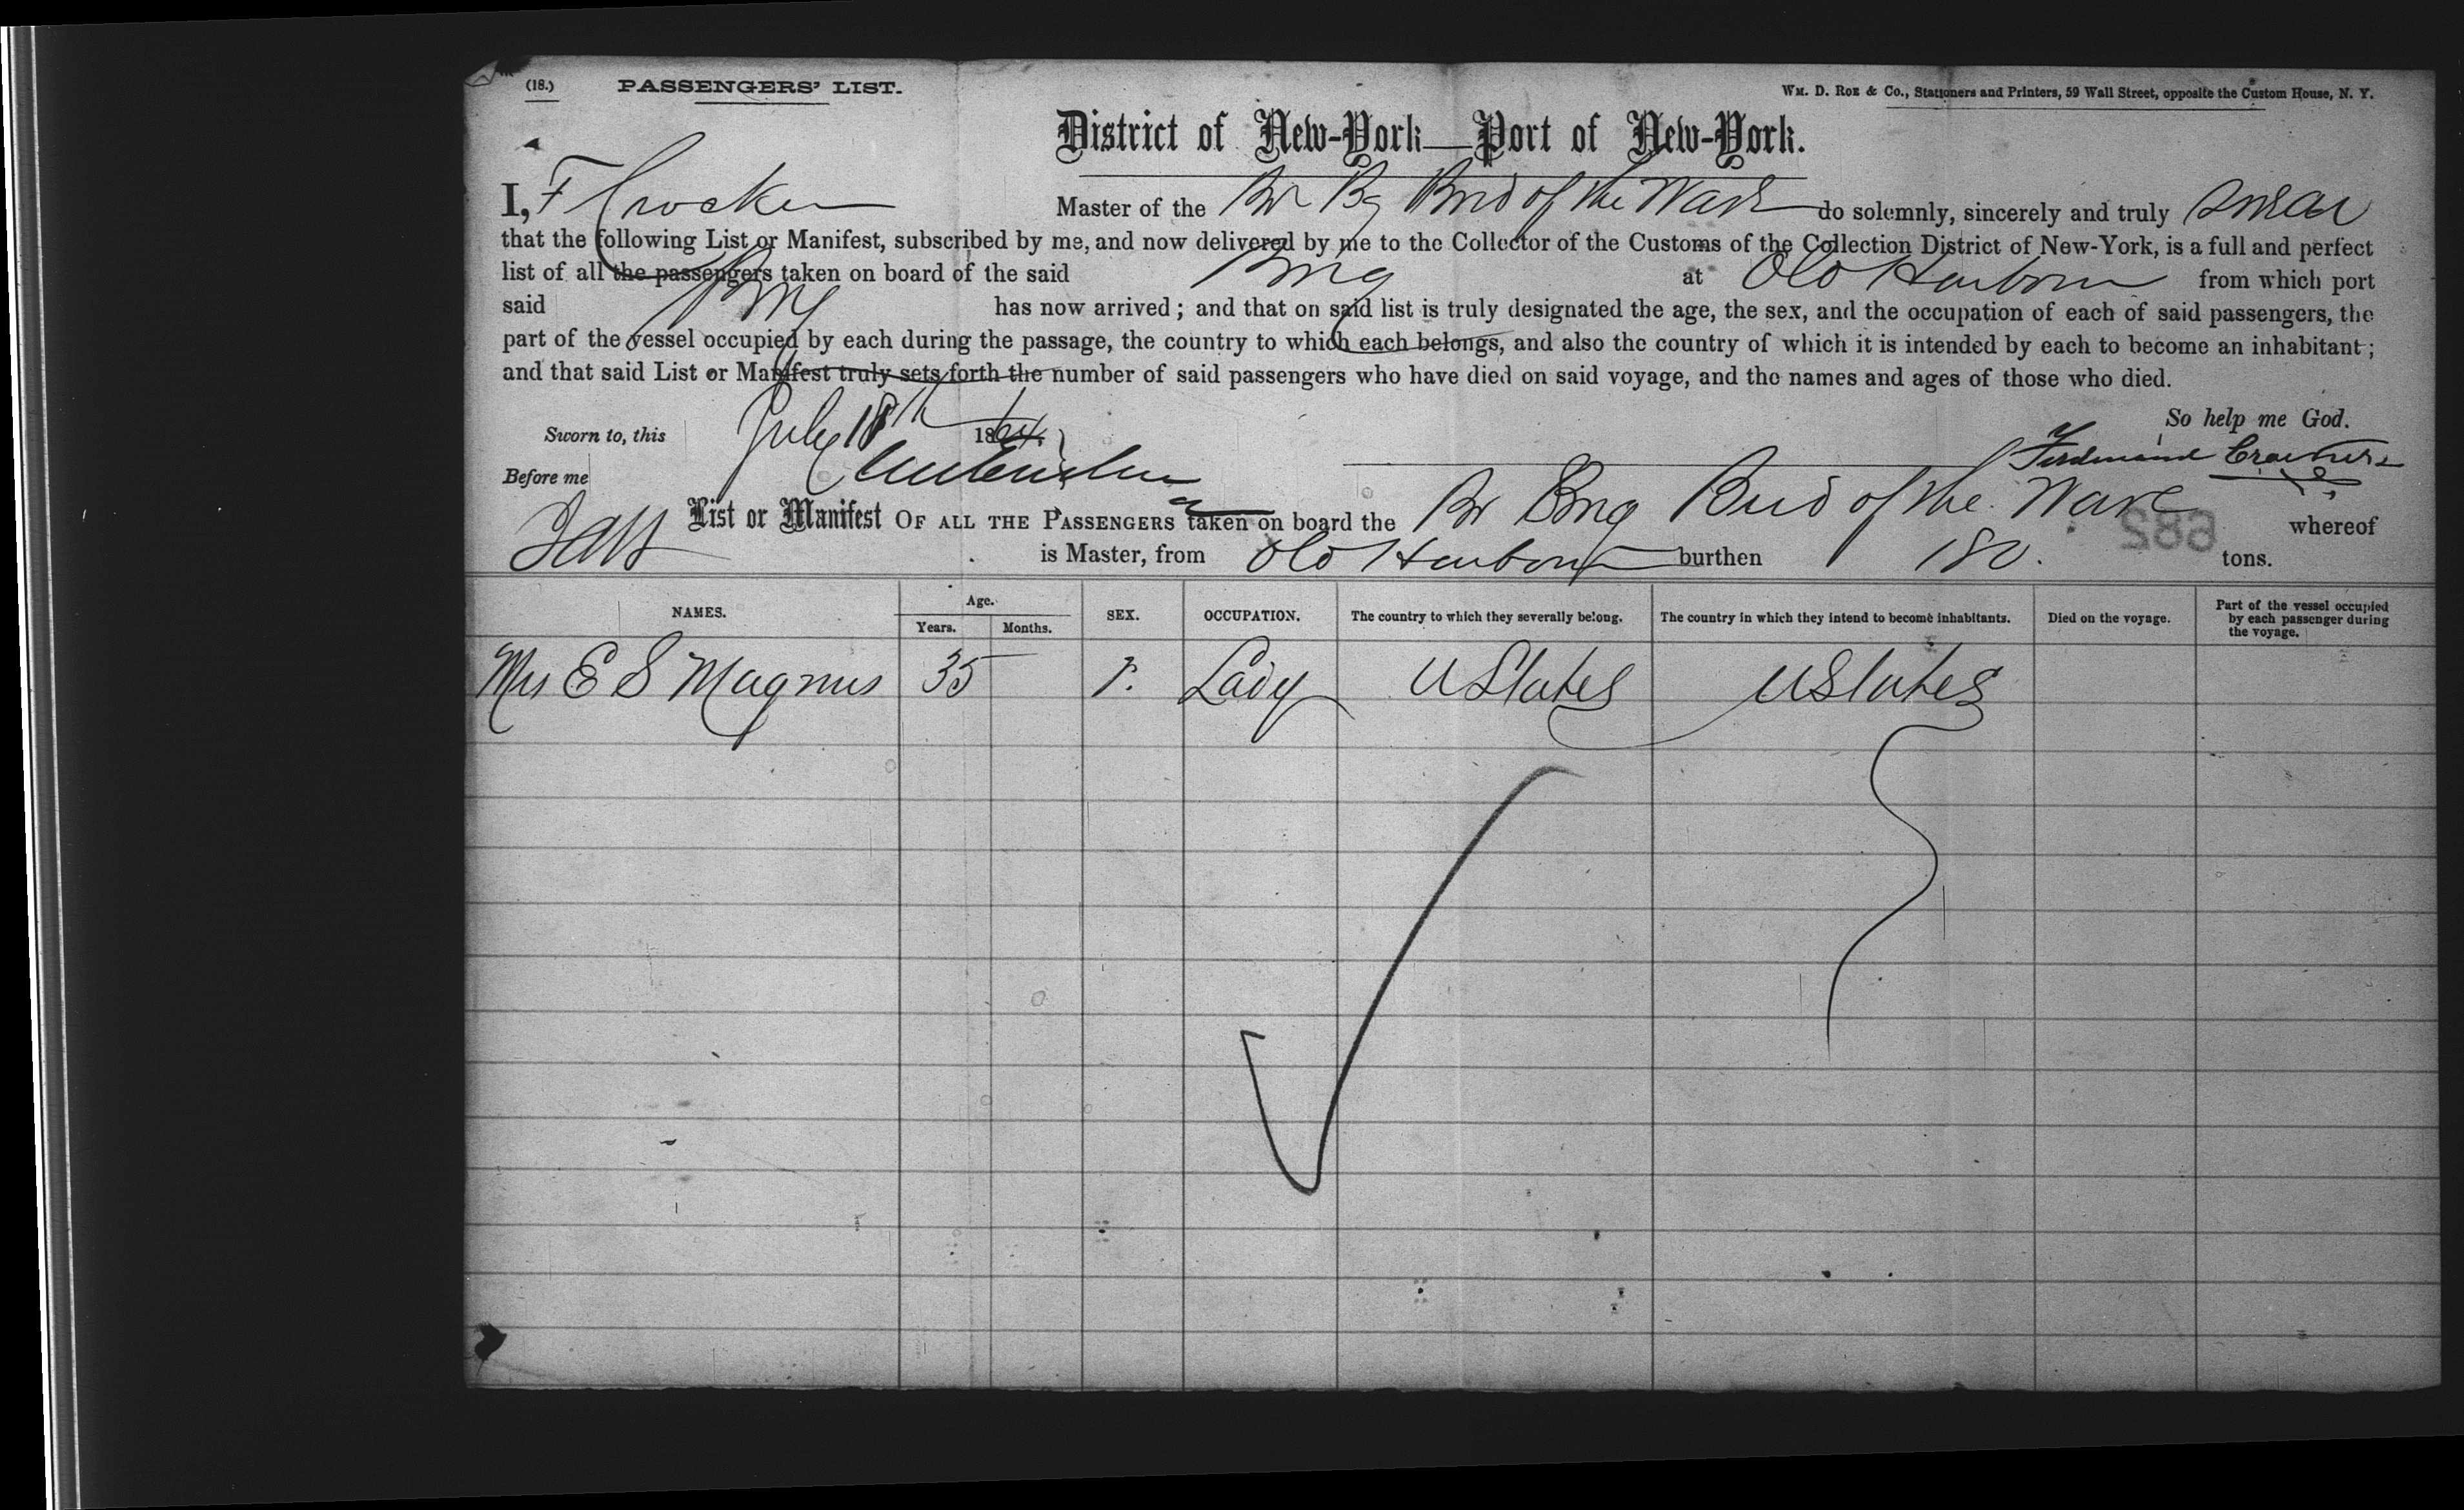 (18.) PASSENGERS' LIST. Wm. D. Roe & Co., Stationers and Printers, 59 Wall Street, opposite the Custom House, N. Y.
District of New-York—Port of New-York.
I, F Crocker Master of the Br Bg Bird of the Wave do solemnly, sincerely and truly swear
that the following List or Manifest, subscribed by me, and now delivered by me to the Collector of the Customs of the Collection District of New-York, is a full and perfect
list of all the passengers taken on board of the said Brig at Old Harbour from which port
said Brig has now arrived; and that on said list is truly designated the age, the sex, and the occupation of each of said passengers, the
part of the vessel occupied by each during the passage, the country to which each belongs, and also the country of which it is intended by each to become an inhabitant;
and that said List or Manifest truly sets forth the number of said passengers who have died on said voyage, and the names and ages of those who died.
So help me God.
Sworn to, this July 18th 1864.
Ferdinand Crocker
Before me
List or Manifest OF ALL THE PASSENGERS taken on board the Br Brig Bird of the Wave whereof
682
is Master, from Old Harbour burthen 180. tons.
NAMES. Age. Years. Months. SEX. OCCUPATION. The country to which they severally belong. The country in which they intend to become inhabitants. Died on the voyage. Part of the vessel occupied by each passenger during the voyage.
Mrs E S Magnus 35 F. Lady U States U States